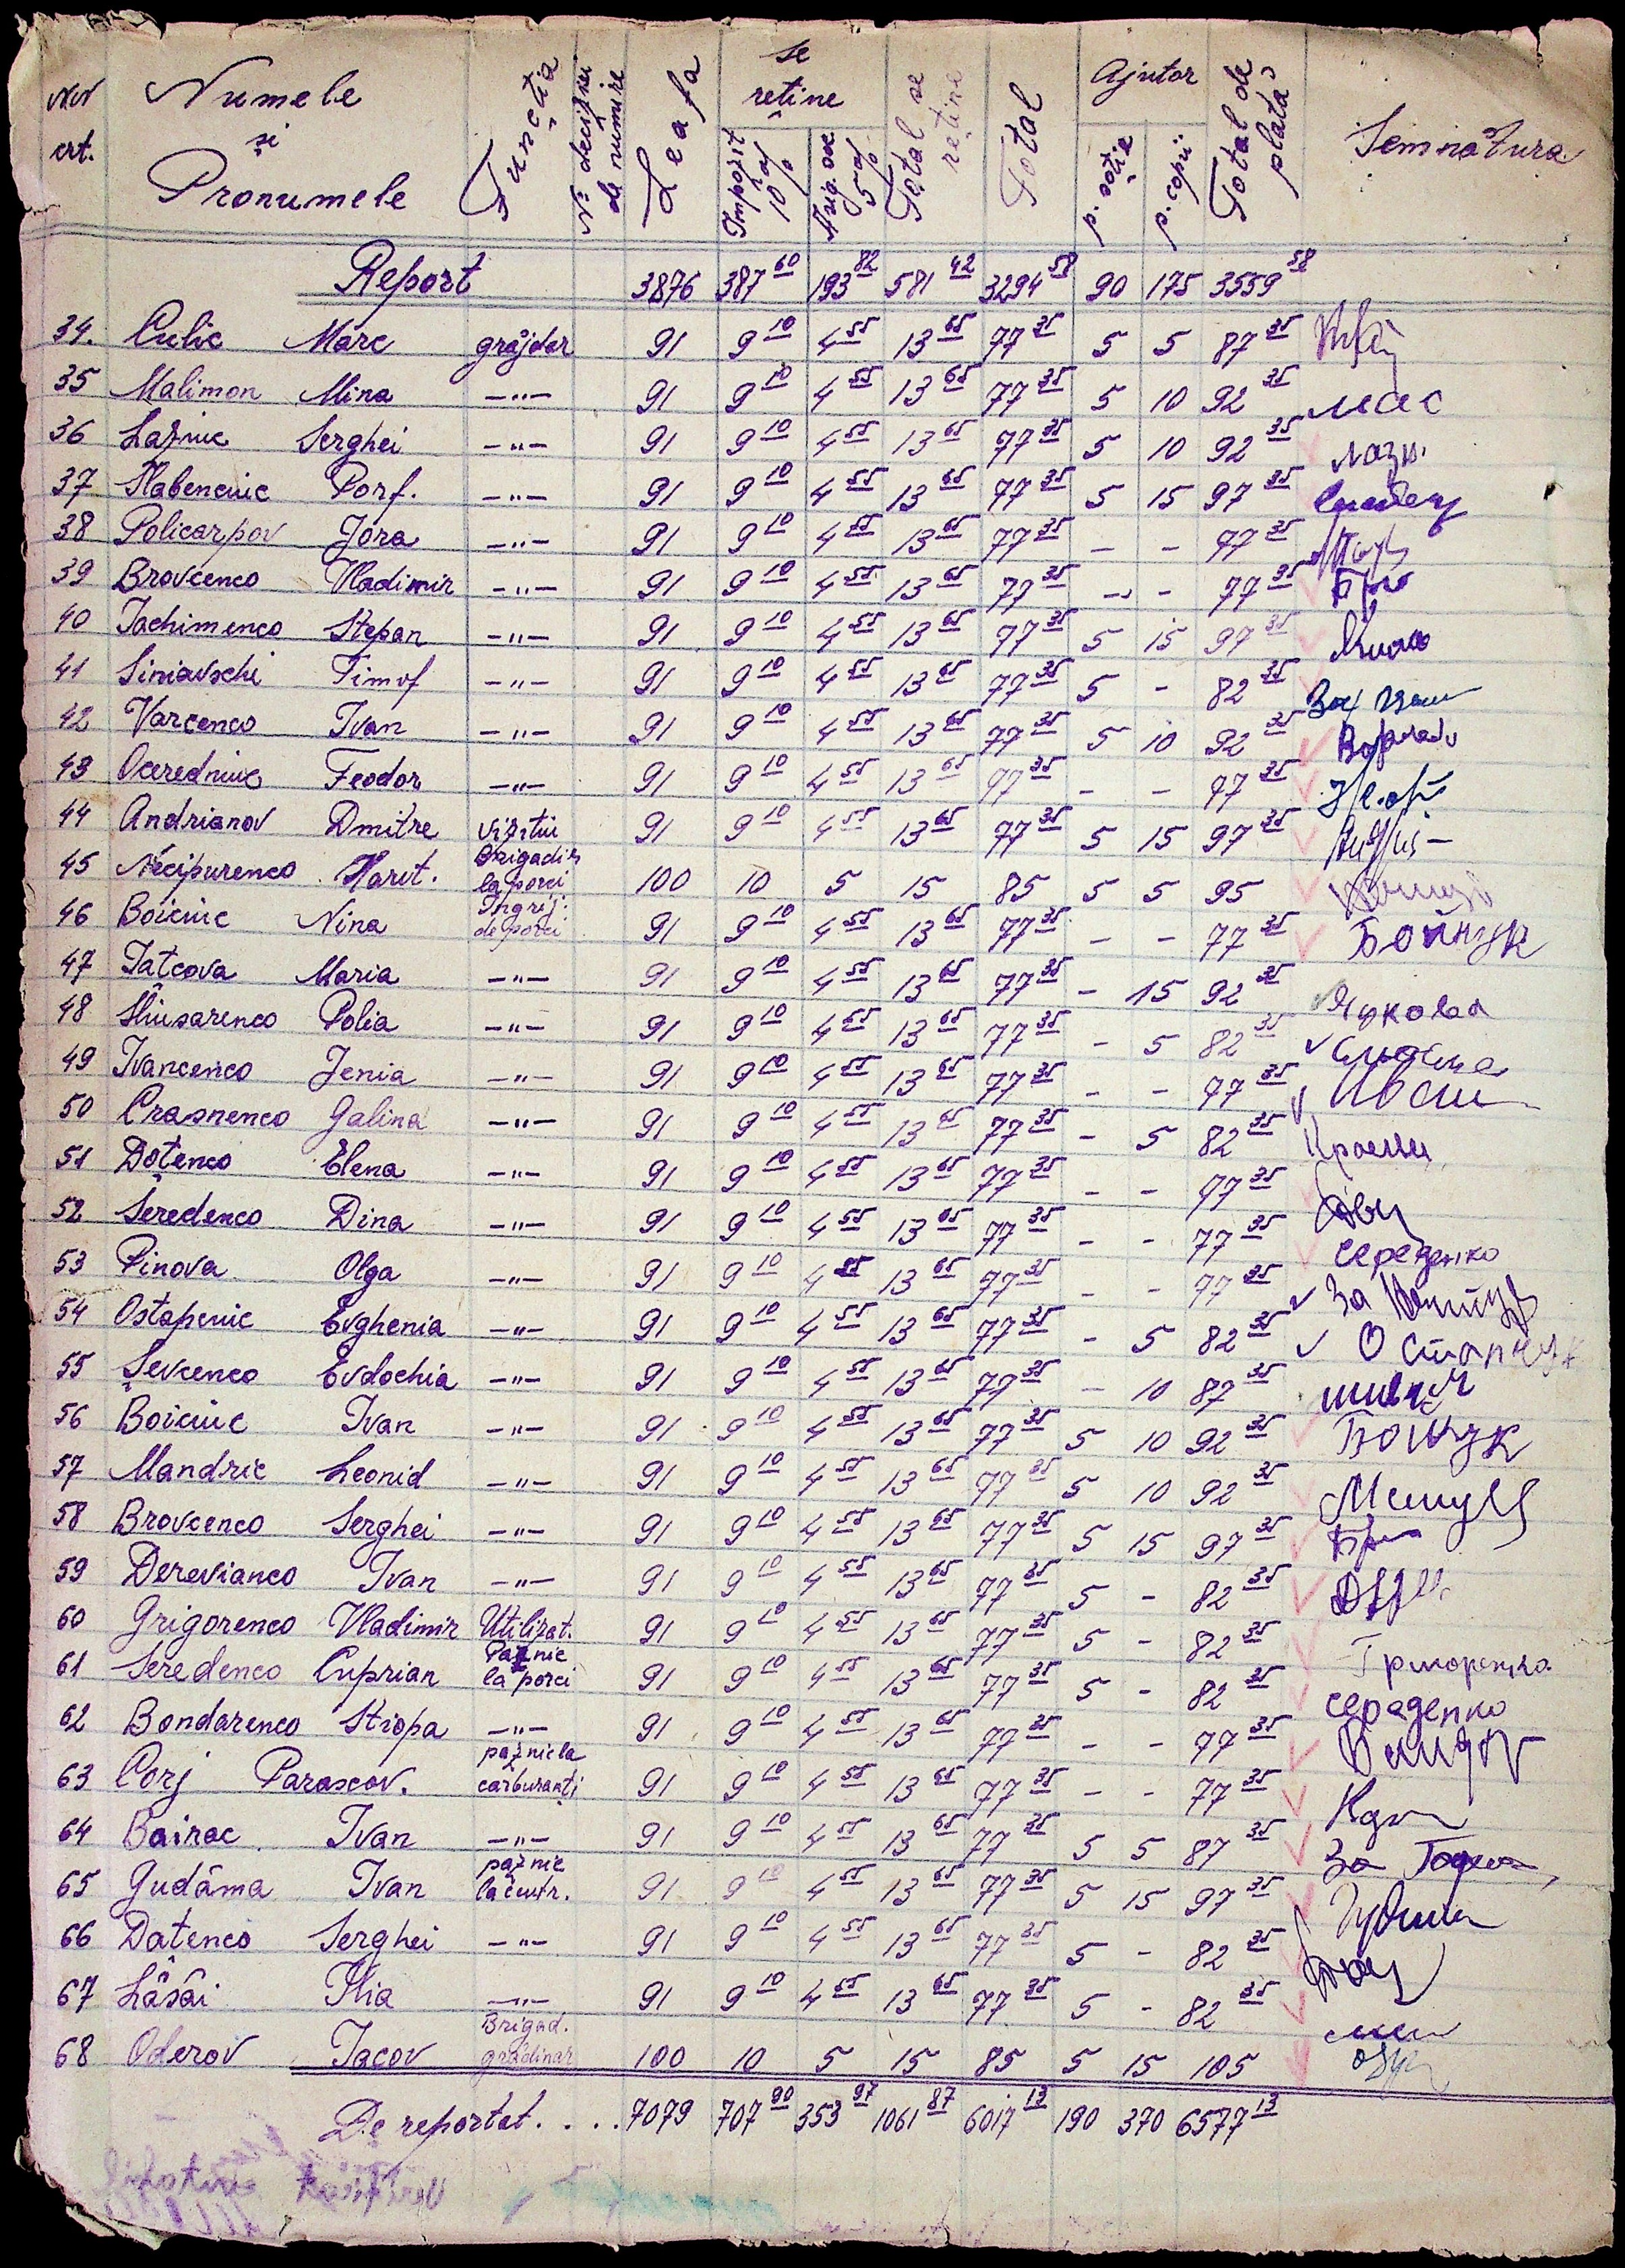 NN crt. Numele și Pronumele Funcția Nº deciziei de numire Leafa se rețíne Impozit 10% Asig. soc 5% Total se reține Total Ajutor p. soție p. copii Total de plată Semnătura
Report 3876 387 60 193 82 581 42 3294 58 90 175 3559 58
34. Culic Marc grăjdar 91 9 10 4 55 13 65 77 35 5 5 87 35
35 Malimon Mina -"- 91 9 10 4 55 13 65 77 35 5 10 92 35 мас
36 Laznic Serghei -"- 91 9 10 4 55 13 65 77 35 5 10 92 35 лазн.
37 Slabenciuc Porf. -"- 91 9 10 4 55 13 65 77 35 5 15 97 35
38 Policarpov Jora -"- 91 9 10 4 55 13 65 77 35 - - 77 35
39 Brovcenco Vladimir -"- 91 9 10 4 55 13 65 77 35 - - 77 35
40 Iachimenco Stepan -"- 91 9 10 4 55 13 65 77 35 5 15 97 35
41 Siniavschi Timof -"- 91 9 10 4 55 13 65 77 35 5 - 82 35
42 Varcenco Ivan -"- 91 9 10 4 55 13 65 77 35 5 10 92 35
43 Oceredniuc Feodor -"- 91 9 10 4 55 13 65 77 35 - - 77 35
44 Andrianov Dmitre vizitiu 91 9 10 4 55 13 65 77 35 5 15 97 35
45 Necipurenco Harit. Brigadir la porci 100 10 5 15 85 5 5 95
46 Boiciuc Nina Îngrij. de porci 91 9 10 4 55 13 65 77 35 - - 77 35 Бойчук
47 Iatcova Maria -"- 91 9 10 4 55 13 65 77 35 - 15 92 35 Яцкова
48 Sliusarenco Polia -"- 91 9 10 4 55 13 65 77 35 - 5 82 35
49 Ivancenco Jenia -"- 91 9 10 4 55 13 65 77 35 - - 77 35
50 Crasnenco Galina -"- 91 9 10 4 55 13 65 77 35 - 5 82 35
51 Doțenco Elena -"- 91 9 10 4 55 13 65 77 35 - - 77 35
52 Seredenco Dina -"- 91 9 10 4 55 13 65 77 35 - - 77 35 середенко
53 Pinova Olga -"- 91 9 10 4 55 13 65 77 35 - - 77 35 За
54 Ostapciuc Evghenia -"- 91 9 10 4 55 13 65 77 35 - 5 82 35 Остапчук
55 Șevcenco Evdochia -"- 91 9 10 4 55 13 65 77 35 - 10 87 35
56 Boiciuc Ivan -"- 91 9 10 4 55 13 65 77 35 5 10 92 35 Бойчук
57 Mandric Leonid -"- 91 9 10 4 55 13 65 77 35 5 10 92 35
58 Brovcenco Serghei -"- 91 9 10 4 55 13 65 77 35 5 15 97 35
59 Derevianco Ivan -"- 91 9 10 4 55 13 65 77 35 5 - 82 35
60 Grigorenco Vladimir Utilizat. 91 9 10 4 55 13 65 77 35 5 - 82 35 Григоренко
61 Seredenco Cuprian Paznic la porci 91 9 10 4 55 13 65 77 35 5 - 82 35 середенко
62 Bondarenco Stiopa -"- 91 9 10 4 55 13 65 77 35 - - 77 35
63 Corj Parascov. paznic la carburanți 91 9 10 4 55 13 65 77 35 - - 77 35
64 Bairac Ivan -"- 91 9 10 4 55 13 65 77 35 5 5 87 35 За
65 Gudâma Ivan paznic la centr. 91 9 10 4 55 13 65 77 35 5 15 97 35
66 Datenco Serghei -"- 91 9 10 4 55 13 65 77 35 5 - 82 35
67 Lâsâi Ilia -"- 91 9 10 4 55 13 65 77 35 5 - 82 35
68 Oderov Iacov Brigad. grădinar 100 10 5 15 85 5 15 105
De reportat.... 7079 707 90 353 97 1061 87 6017 13 190 370 6577 13